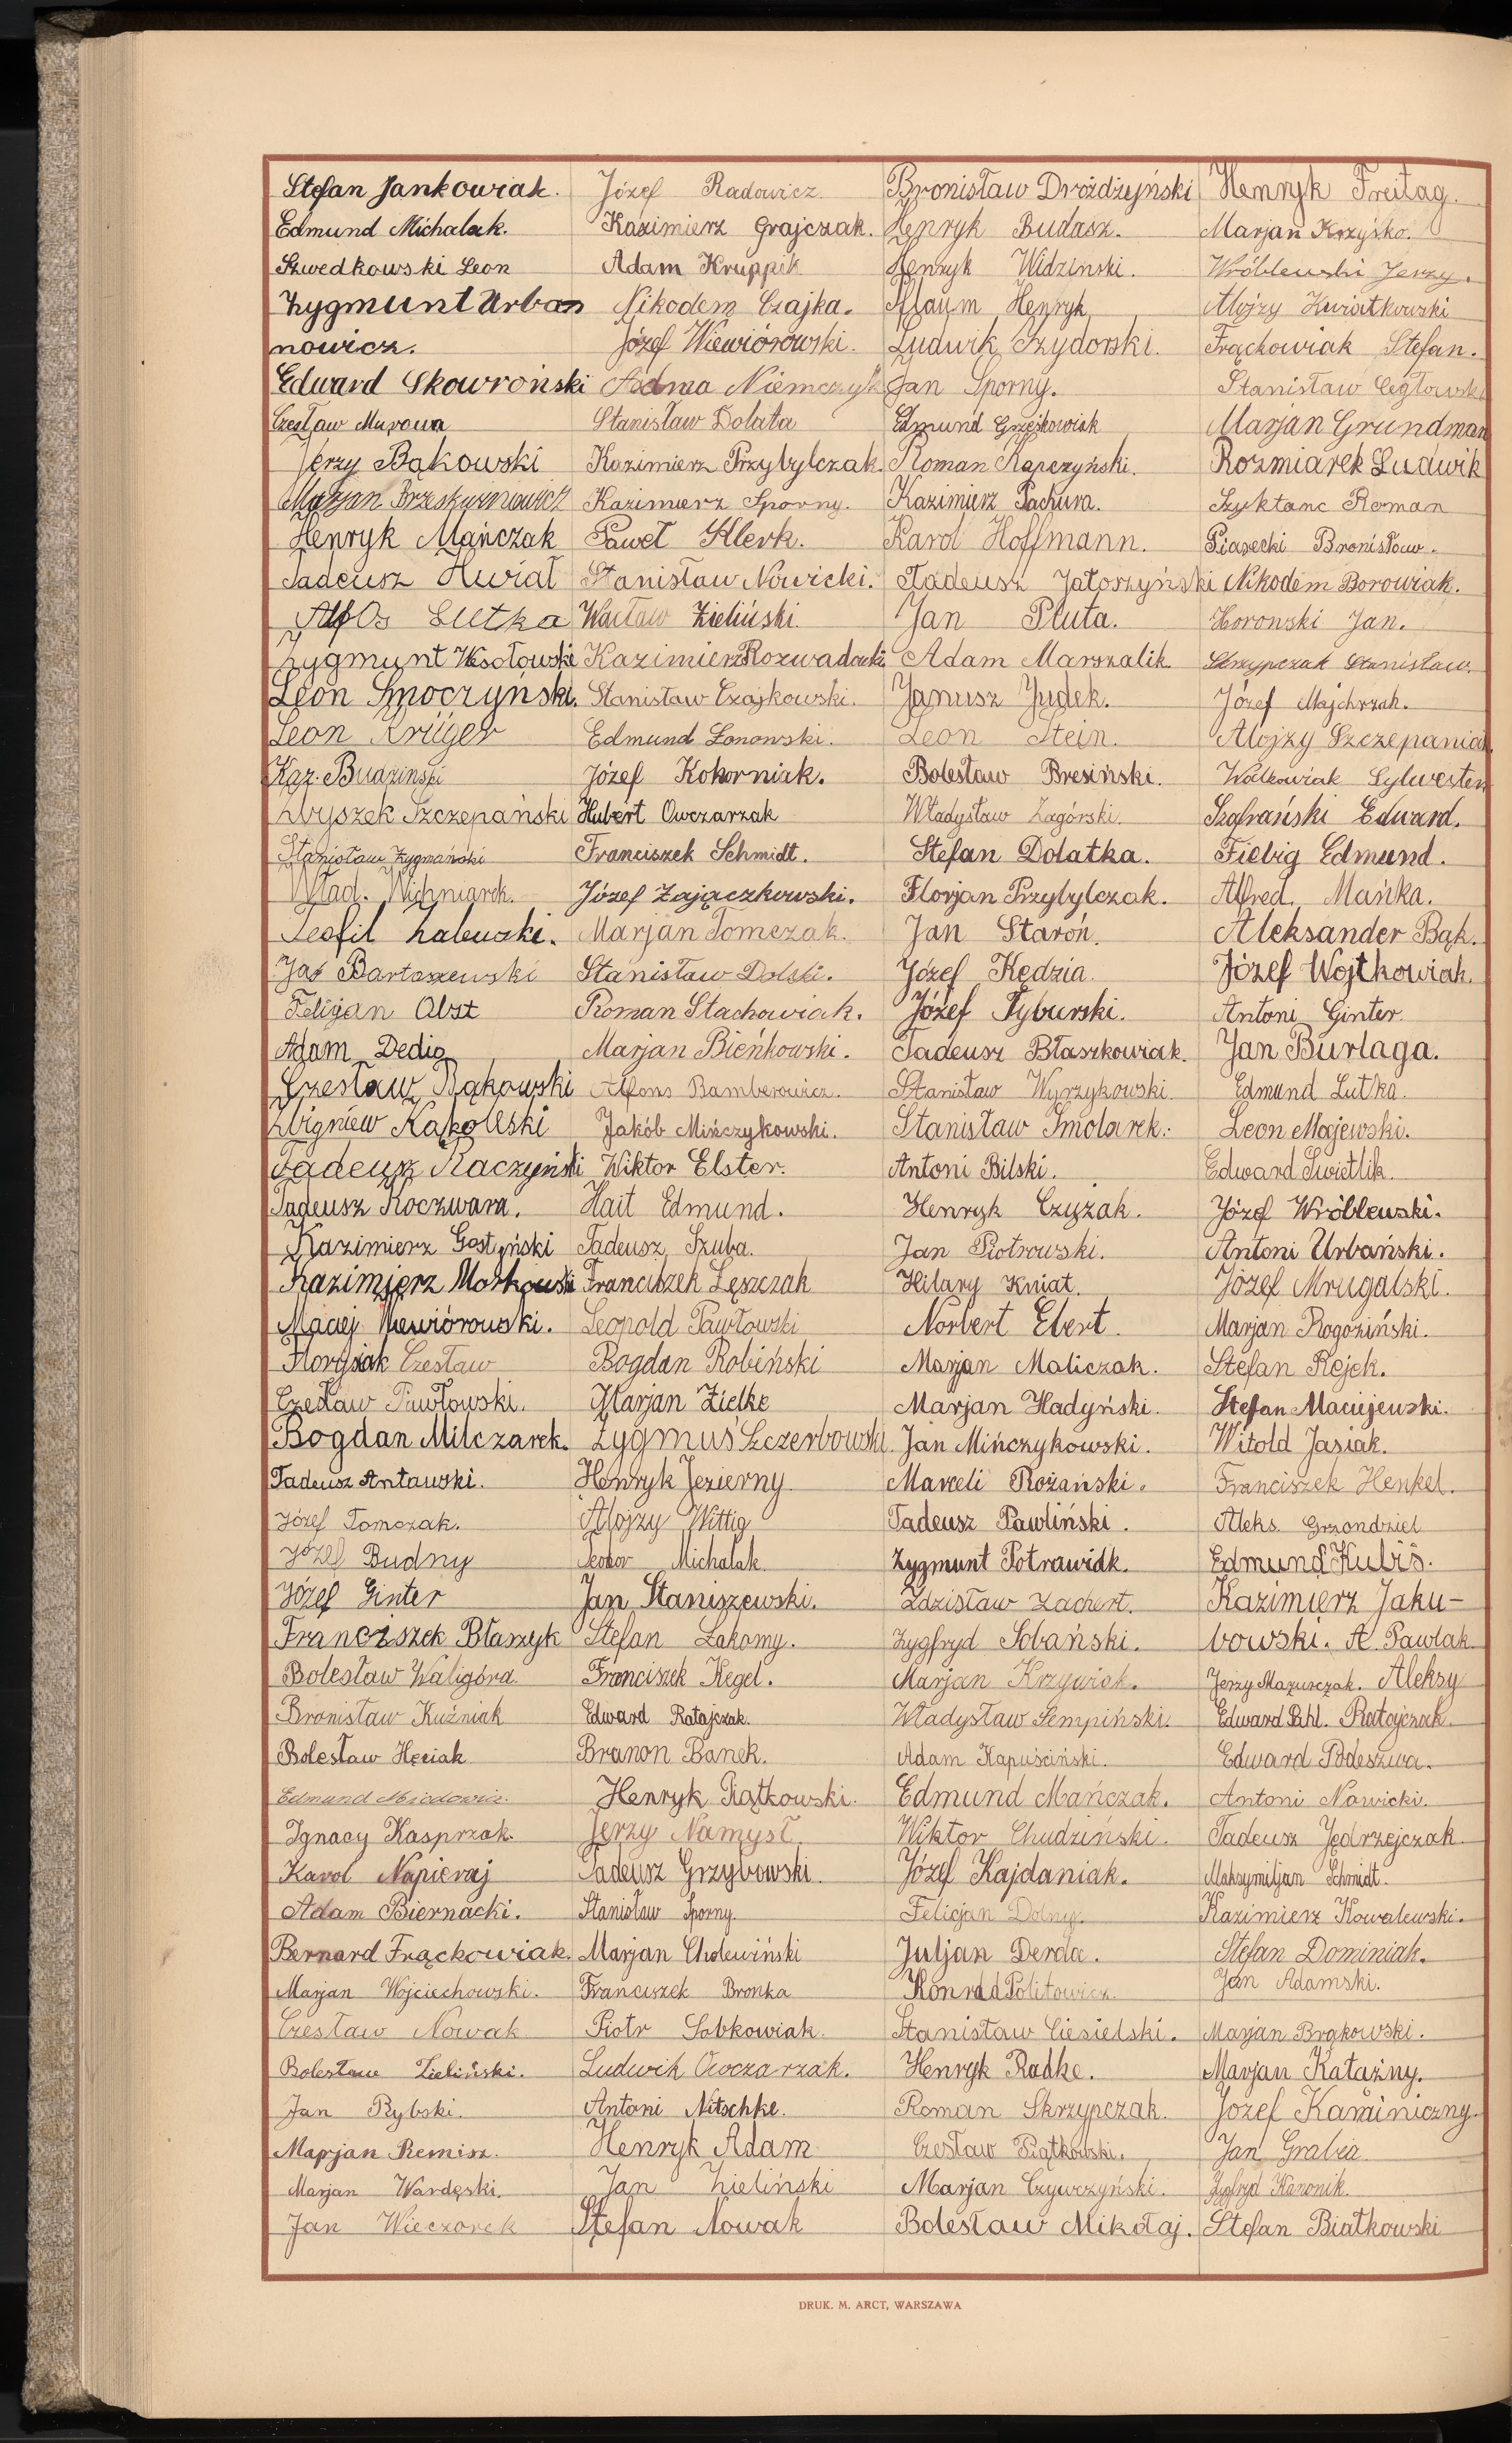 Stefan Jankowiak.
Edmund Michalak.
Szwedkowski Leon
Zygmunt Urba
nowicz.
Edward Skowroński
Czesław
Jerzy Bąkowski
Marjan
Henryk Mańczak
Tadeusz Kwiat
Lutka
Zygmunt Wesołowski
Leon Smoczyński.
Leon Krüger
Kaz. Budzinski
Zbyszek Szczepański
Stanisław Zygmański
Wład. Wichniarek.
Teofil Zalewski.
Jan Bartoszewski
Obst
Adam Dedio
Czesław Bąkowski
Zbigniew Kąkolewski
Tadeusz Raczyński
Tadeusz Koczwara.
Kazimierz Gostyński
Kazimierz
Maciej Wiewiórowski.
Florysiak Czesław
Czesław Pawłowski.
Bogdan Milczarek.
Tadeusz Antawski.
Józef Tomczak.
Józef Budny
Józef Ginter
Franciszek Błaszyk
Bolesław Waligóra.
Bronisław Kuźniak
Bolesław Hęciak
Edmund
Ignacy Kasprzak.
Karol Napieraj
Adam Biernacki.
Bernard Frąckowiak.
Marjan Wojciechowski.
Czesław Nowak
Bolesław Zieliński.
Jan Rybski.
Marjan Remisz.
Marjan Wardęski.
Jan Wieczorek
Józef Radowicz.
Kazimierz Grajczak.
Adam Kruppik
Nikodem Czajka.
Józef Wiewiórowski.
Niemczyk
Stanisław Dolata
Kazimierz Przybylczak.
Kazimierz Sporny.
Paweł Klerk.
Stanisław Nowicki.
Wacław Zieliński.
Kazimierz Rozwadowski
Stanisław Czajkowski.
Edmund Lonowski.
Józef Kokorniak.
Hubert Owczarzak
Franciszek Schmidt.
Józef Zajączkowski.
Marjan Tomczak.
Stanisław Dolski.
Roman Stachowiak.
Marjan Bieńkowski.
Alfons Bamberowicz.
Jakób Mińczykowski.
Wiktor Elster.
Hait Edmund.
Tadeusz Szuba.
Franciszek Leszczak
Leopold Pawłowski
Bogdan Robiński
Marjan Zielke
Zygmuś Szczerbowski
Henryk Jezierny
Alojzy Wittig
Teodor Michalak.
Jan Staniszewski.
Stefan Łakomy.
Franciszek Kegel.
Edward Ratajczak.
Branon Banek.
Henryk Piątkowski.
Jerzy Namysł.
Tadeusz Grzybowski.
Stanisław Sporny.
Marjan Cholewiński
Franciszek Bronka
Piotr Sobkowiak.
Ludwik Owczarzak.
Antoni Nitschke.
Henryk Adam
Jan Zieliński
Stefan Nowak
Bronisław Drożdżyński
Henryk Budasz.
Henryk Widzinski.
Pflaum Henryk
Ludwik Szydorski.
Jan Sporny.
Edmund Grześkowiak
Roman Kapczyński.
Kazimierz Pachura.
Karol Hoffmann.
Tadeusz Jatoszyński
Jan Pluta.
Adam Marszalik.
Janusz Judek.
Leon Stein.
Bolesław Bresiński.
Władysław Zagórski.
Stefan Dolatka.
Florjan Przybylczak.
Jan Staroń.
Józef Kędzia.
Józef Tyburski.
Tadeusz Błaszkowiak.
Stanisław Wyrzykowski.
Stanisław Smolarek.
Antoni Bilski.
Henryk Czyżak.
Jan Piotrowski.
Hilary Kniat.
Norbert Ebert.
Marjan Maliczak.
Marjan Hadyński.
Jan Mińczykowski.
Marceli Rożański.
Tadeusz Pawliński.
Zygmunt Potrawiak.
Zdzisław Zachert.
Zygfryd Sobański.
Marjan Krzywiak.
Władysław Sempiński.
Adam Kapuściński.
Edmund Mańczak.
Wiktor Chudziński.
Józef Kajdaniak.
Felicjan Dolny.
Juljan Derda.
Konrad Politowicz.
Stanisław Ciesielski.
Henryk Radke.
Roman Skrzypczak.
Czesław Piątkowski.
Marjan Czywczyński.
Bolesław Mikołaj.
Henryk Freitag.
Marjan Krzyśko.
Wróblewski Jerzy.
Alojzy Kwiatkowski
Frąckowiak Stefan.
Stanisław Cegłowski
Marjan Grundman
Rozmiarek Ludwik
Szyktanc Roman
Piasecki Bronisław.
Nikodem Borowiak.
Horonski Jan.
Skrzypczak Stanisław.
Józef Majchrzak.
Alojzy Szczepaniak
Walkowiak Sylwester
Szafrański Edward.
Fiebig Edmund.
Alfred Mańka.
Aleksander Bąk.
Józef Wojtkowiak.
Antoni Ginter.
Jan Burlaga.
Edmund Lutka.
Leon Majewski.
Edward Świetlik.
Józef Wróblewski.
Antoni Urbański.
Józef Mrugalski.
Marjan Rogoziński.
Stefan Rejek.
Stefan Maciejewski.
Witold Jasiak.
Franciszek Henkel.
Aleks. Grzondziel
Edmund Kubiś.
Kazimierz Jaku-
bowski. A. Pawlak.
Jerzy Mazurczak. Aleksy
Edward Pahl. Ratajczak.
Edward Podeszwa.
Antoni Nawicki.
Tadeusz Jędrzejczak.
Maksymiljan Schmidt.
Kazimierz Kowalewski.
Stefan Dominiak.
Jan Adamski.
Marjan Brąkowski.
Marjan Kataźny.
Józef Kaminiczny.
Jan Grabia.
Zygfryd Kanonik.
Stefan Białkowski
DRUK. M. ARCT, WARSZAWA